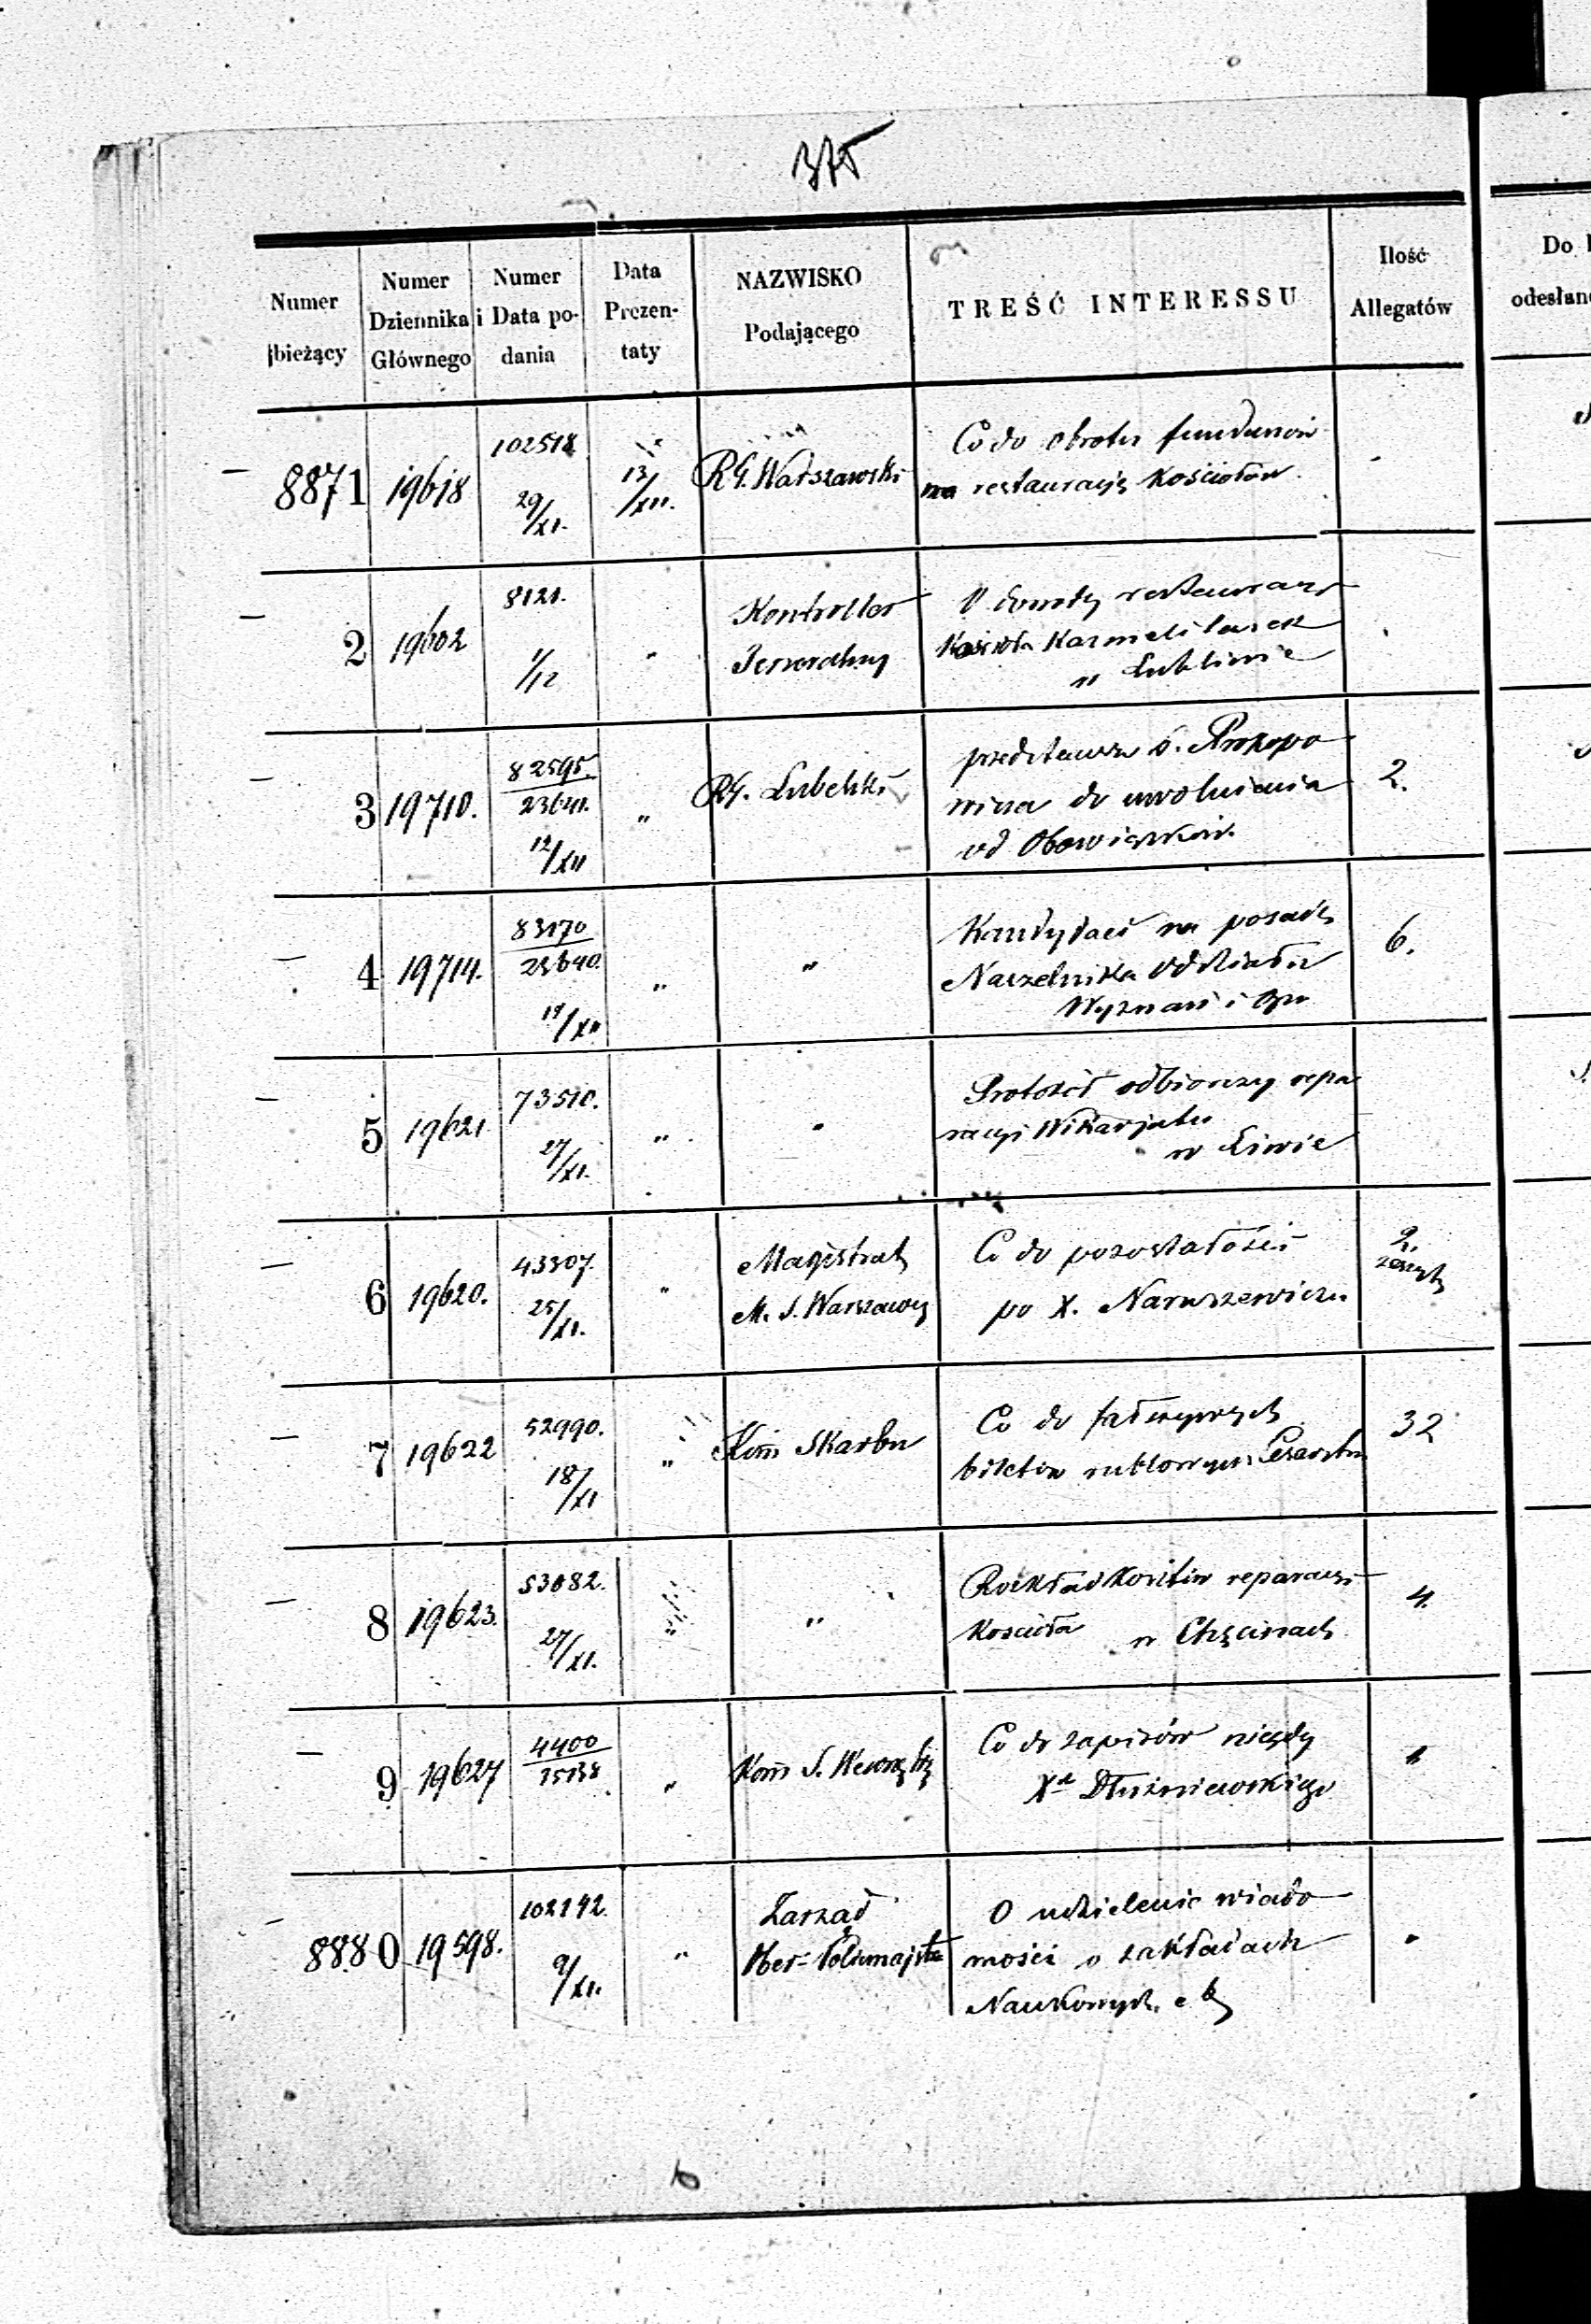 375
Numer bieżący
Numer Dziennika Głównego
Numer i Data podania
Data Prezentaty
NAZWISKO Podającego
TREŚĆ INTERESSU
Ilość Allegatów
Do
odesłan
8871 19618 102518 29/XI. 13/XII. RG. Warszawski
Co do obrotu funduszów
na restaurację Kościołów
2 19602 8121. 1/12 " Kontroller
Jeneralny
restauracyi
Kościoła Karmelitanek
w Lublinie
3 19710. 82595/23641. 12/XII " RG. Lubelski
przedstawia
do uwolnienia
od Obowiązków
2.
4 19714. 83170/23640. 12/XII " "
Kandydaci na posadę
Naczelnika Oddziału
Wyznań i
6.
5 19621 73510. 27/XI. " "
Protokół odbiorczy repa
racyi Wikarjatu
w Liwie
6 19620. 43307. 25/XI. " Magistrat
M. S. Warszawy
Co do pozostałości
po X. Naruszewiczu
2.
zeszyty
7 19622 52990. 18/XI " Kom̃ Skarbu
Co do fałszywych
biletów rublowych Cesarstwa
32
8 19623. 53082. 27/XI. " "
Rozkład kosztów reparacyi
Kościoła w Chęcinach
4.
9 19627 4400 " Kom̃ S. Wewnętrz
Co do zapisów niegdy
Xa Dłużniewskiego
1
8880 19598. 102142. 9/XI. " Zarząd
Ober-Policmajstra
O udzielenie wiado
mości o zakładach
Naukowych.